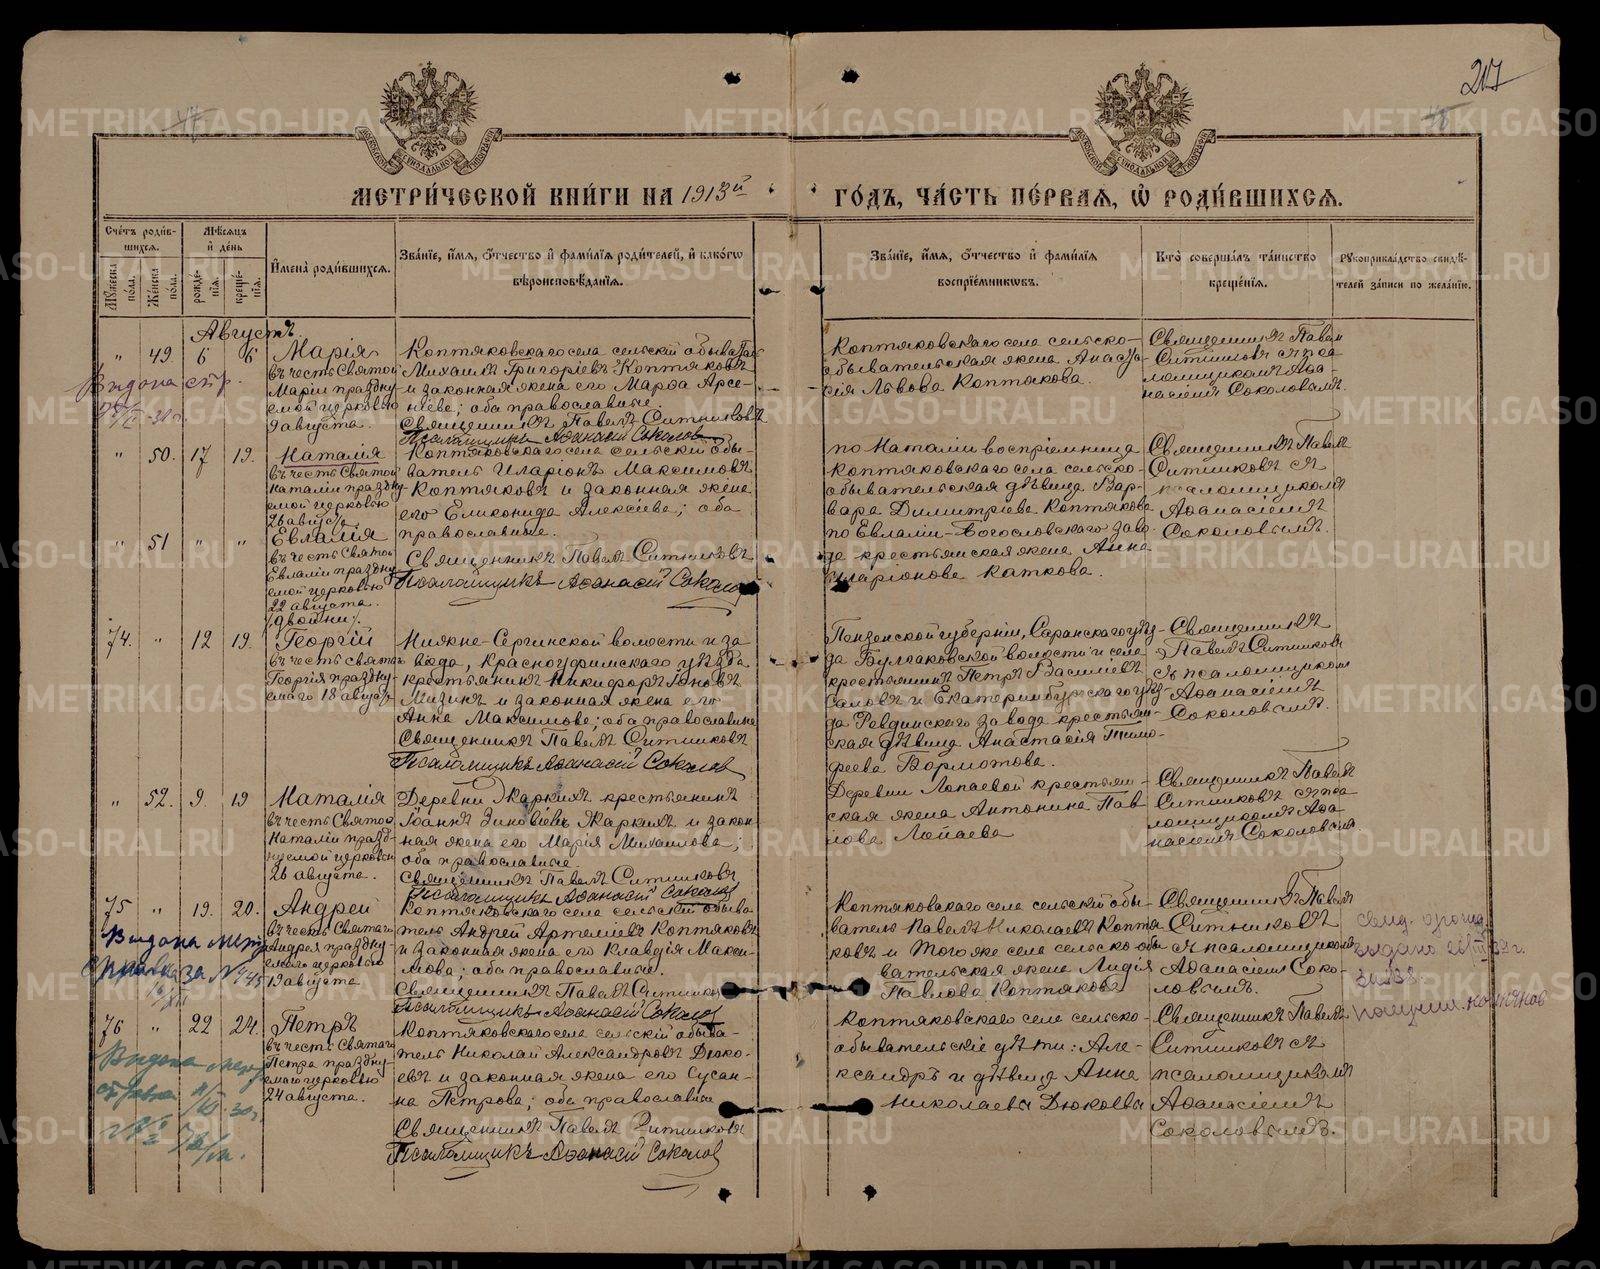 217
МЕТРИЧЕСКОЙ КНИГИ НА 1913й
ГОДЪ, ЧАСТЬ ПЕРВАЯ, Ѡ РОДИВШИХСЯ.
Счетъ родив-
шихся.
Мужеска пола.
Женска пола.
Мѣсяцъ и день
рожде-
нія.
креще-
нія.
Имена родившихся.
Званіе, имя, отчество и фамилія родителей, и какого
вѣроисповѣданія.
Званіе, имя, отчество и фамилія
воспріемниковъ.
Кто совершалъ таинство
крещенія.
Рукоприкладство свидѣ-
телей записи по желанію.
Августъ.
" 49 6 6
Марія
въ честь Святой
Маріи праздну-
емой церковью
9 августа.
Коптяковскаго села сельскій обыватель
Михаилъ Григоріевъ Коптяковъ
и законная жена его Марѳа Арсе-
ніева; оба православные.
Священникъ Павелъ Ситниковъ
Псаломщикъ Аѳанасій Соколов
Коптяковскаго села сельско-
обывательская жена Анаста-
сія Львова Коптякова.
Священникъ Павелъ
Ситниковъ съ пса-
ломщикомъ Аѳа-
насіемъ Соколовымъ.
Выдана
" 50. 17 19.
Наталія
въ честь Святой
Наталіи праздну-
емой церковью
26 августа.
Коптяковскаго села сельскій обы-
ватель Иларіонъ Максимовъ
Коптяковъ и законная жена
его Еликонида Алексіева; оба
православные.
Священникъ Павелъ Ситниковъ
Псаломщикъ Аѳанасій Соколов
по Наталіи воспріемница
Коптяковскаго села сельско-
обывательская дѣвица Вар-
вара Димитріева Коптякова
по Евлаліи - Богословскаго заво-
да крестьянская жена Анна
Иларіонова Каткова.
Священникъ Павелъ
Ситниковъ съ
псаломщикомъ
Аѳанасіемъ
Соколовымъ.
" 51 " "
Евлалія
въ честь Святой
Евлаліи праздну-
емой церковью
22 августа.
(двойни).
74. " 12 19.
Георгій
въ честь Святаго
Георгія праздну-
емаго 18 август
Нижне-Сергинской волости и за-
вода, Красноуфимскаго уѣзда
крестьянинъ Никифоръ Іоновъ
Мизинъ и законная жена его
Анна Максимова; оба православные
Священникъ Павелъ Ситниковъ
Псаломщикъ Аѳанасій Соколов
Пензенской губерніи, Саранскаго уѣз-
да Булгаковской волости и села
крестьянинъ Петръ Василіевъ
и Екатеринбургскаго уѣз-
да Ревдинскаго завода крестьян-
ская дѣвица Анастасія Тимо-
феева Вормотова.
Священникъ
Павелъ Ситниковъ
съ псаломщикомъ
Аѳанасіемъ
Соколовымъ.
" 52. 9. 19
Наталія
въ честь Святой
Наталіи празд-
нуемой церковью
26 августа.
Деревни Жаркихъ крестьянинъ
Іоаннъ Зиновіевъ Жаркихъ и закон-
ная жена его Марія Михаилова;
оба православные.
Священникъ Павелъ Ситниковъ
Псаломщикъ Аѳанасій Соколов
Деревни Лопаевой крестьян-
ская жена Антонина Пав-
лова Лопаева
Священникъ Павелъ
Ситниковъ съ пса-
ломщикомъ Аѳа-
насіемъ Соколовымъ
75 " 19. 20.
Андрей
въ честь Святаго
Андрея праздну-
емаго церковью
19 августа.
Коптяковскаго села сельскій обыва-
тель Андрей Артеміевъ Коптяковъ
и законная жена его Клавдія Макси-
мова; оба православные.
Священникъ Павелъ Ситниковъ
Псаломщикъ Аѳанасій Соколов
Коптяковскаго села сельскій обы-
ватель Павелъ Николаевъ Коптя-
ковъ и того же села сельско-обы-
вательская жена Лидія
Павлова Коптякова
Священникъ Павелъ
Ситниковъ
съ псаломщикомъ
Аѳанасіемъ Соко-
ловымъ.
Выдана метр
справка за №
76 " 22 24.
Петръ
въ честь Святаго
Петра праздну-
емаго церковью
24 августа.
Коптяковскаго села сельскій обыва-
тель Николай Александровъ Дюко-
евъ и законная жена его Сусан-
на Петрова; оба православные
Священникъ Павелъ Ситниковъ
Псаломщикъ Аѳанасій Соколов
Коптяковскаго села сельско-
обывательскіе дѣти: Але-
ксандръ и дѣвица Анна
Николаевы Дюкоевы
Священникъ Павелъ
Ситниковъ съ
псаломщикомъ
Аѳанасіемъ
Соколовымъ.
Выдана
METRIKI.GASO-URAL.RU